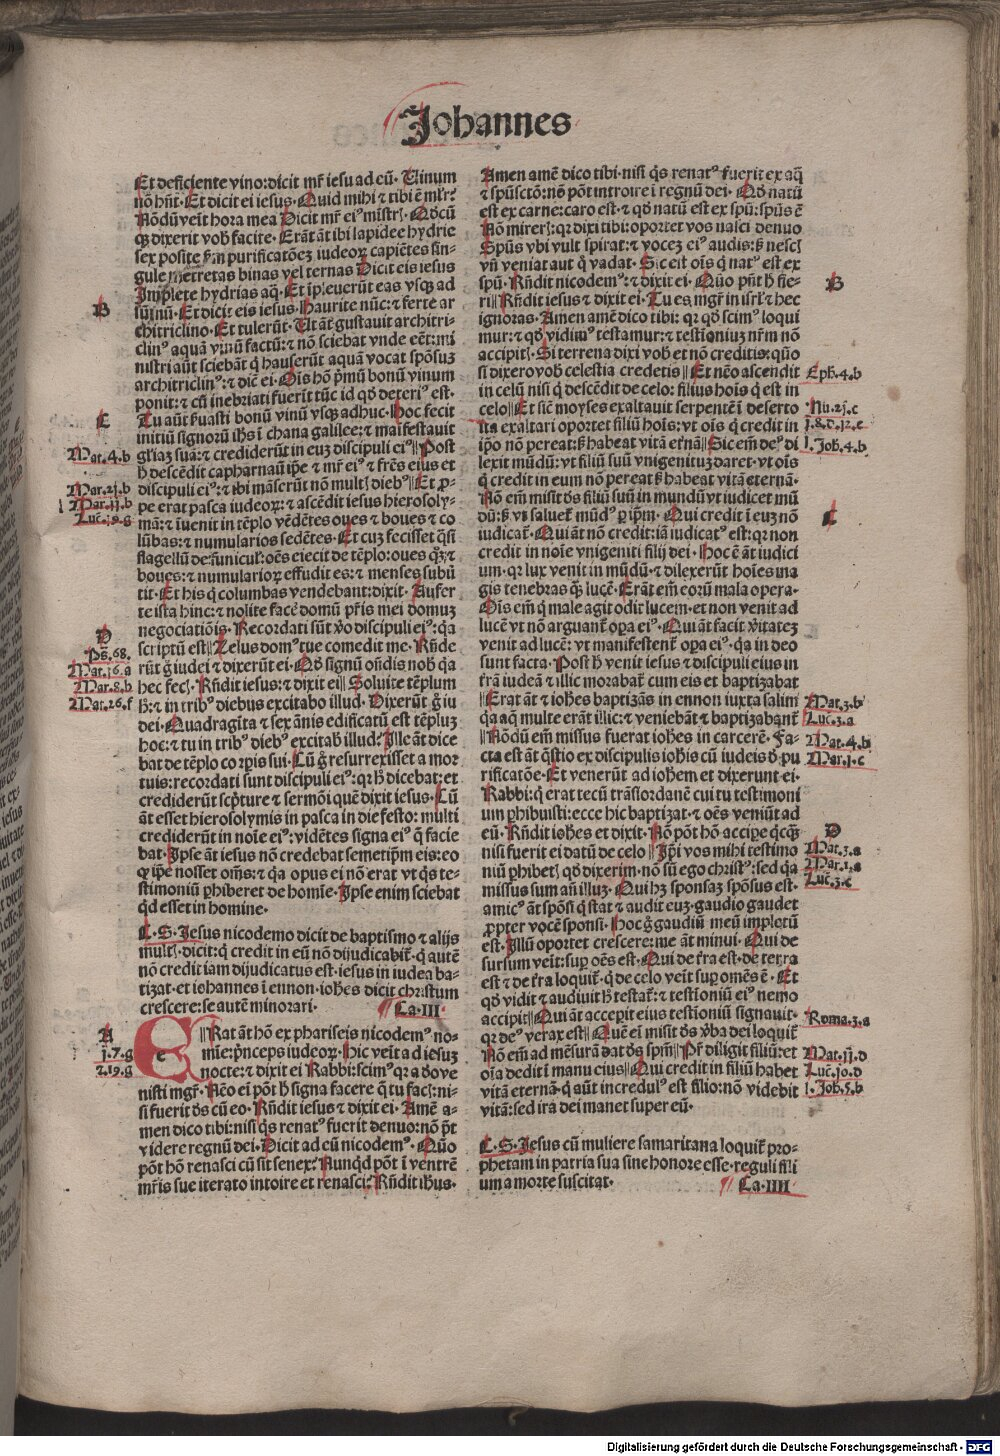 Johannes
Et deficiente vino: dicit mr̄ iesu ad eū. Uinum
nō hn̄t. Et dicit ei iesus. Quid mihi ⁊ tibi ē mlr̄?
Nōdū veīt hora mea Dicit mr̄ eiꝰ mīstrꝭ. Qd̄cū
qꝫ dixerit vob̄ facite. Erāt āt ibi lapidee hydrie
sex posite ẜm purificatōeꝫ iudeoꝝ capiētes sin-
gule metretas binas vel ternas Dicit eis iesus
Implete hydrias aq̄. Et īpleuerūt eas vsqꝫ ad
sūmū. Et dicit eis iesus. Haurite nūc: ⁊ ferte ar
chitriclino. Et tulerūt. Ut āt gustauit architri-
clinꝰ aquā vinū factū: ⁊ nō sciebat vnde eēt: mi
nistri aūt sciebāt q̇ hauserūt aquā vocat spōsuꝫ
architriclinꝰ: ⁊ dic̄ ei. Oīs hō p̄mū bonū vinum
ponit: ⁊ cū inebriati fuerīt tūc id qd̄ deteriꝰ est.
Tu aūt ẜuasti bonū vinū vsqꝫ adhuc. Hoc fecit
initiū signorū ih̄s ī chana galilee: ⁊ maīfestauit
gl̄iaꝫ suā: ⁊ crediderūt in euꝫ discipuli eiꝰ Post
h̄ descēdit capharnaū ip̄e ⁊ mr̄ eiꝰ ⁊ fr̄es eius et
discipuli eiꝰ: ⁊ ibi māserūt nō multꝭ diebꝰ Et ꝓ-
pe erat pasca iudeoꝝ: ⁊ ascēdit iesus hierosoly-
mā: ⁊ īuenit in tēplo vēdētes oues ⁊ boues ⁊ co
lūbas: ⁊ numularios sedētes. Et cuꝫ fecisset q̄si
flagellū de funiculꝭ: oēs eiecit de tēplo: oues qꝫ: ⁊
boues: ⁊ numularioꝝ effudit es: ⁊ mensas subū
tit. Et his q̇ columbas vendebant: dixit. Aufer
te ista hinc: ⁊ nolite facē domū pr̄is mei domuꝫ
negociatiōis. Recordati sūt v̄o discipuli eiꝰ: q̇a
scriptū est Zelus domꝰ tue comedit me. Rn̄de
rūt ḡ iudei ⁊ dixerūt ei. Qd̄ signū on̄dis nob̄ q̇a
hec fecꝭ. Rn̄dit iesus: ⁊ dixit ei Soluite tēplum
h̄: ⁊ in tribꝰ diebus excitabo illud. Dixerūt ḡ iu
dei. Quadragīta ⁊ sex ānis edificatū est tēpluꝫ
hoc: ⁊ tu in tribꝰ diebꝰ excitab̄ illud: Ille āt dice
bat de tēplo corpīs sui. Cū ḡ resurrexisset a mor
tuis: recordati sunt discipuli eiꝰ: qr h̄ dicebat: et
crediderūt scp̄ture ⁊ sermōi quē dixit iesus. Cū
āt esset hierosolymis in pasca in die festo: multi
crediderūt in noīe eiꝰ: vidētes signa eiꝰ q̄ facie
bat. Ipse āt iesus nō credebat semetip̄m eis: eo
q̄ ip̄e nosset om̄s: ⁊ q̇a opus ei nō erat vt q̇s te-
stimoniū ꝑhiberet de homīe. Ipse enim sciebat
q̇d esset in homine.
C. S. Jesus nicodemo dicit de baptismo ⁊ alijs
multꝭ. dicit: q̇ credit in eū nō dijudicabit̄. q̇ autē
nō credit iam dijudicatus est. iesus in iudea ba-
tizat. et iohannes ī ennon. ioh̄es dicit christum
crescere: se autē minorari. Ca. III
ERat āt hō ex phariseis nicodemꝰ no-
mīe: p̄nceps iudeoꝝ. Hic veīt ad iesuꝫ
nocte: ⁊ dixit ei Rabbi: scimꝰ qr a dōve
nisti mgr̄. Nēo ei pōt h̄ signa facere q̄ tu facꝭ: ni-
si fuerit dꝰ cū eo. Rn̄dit iesus ⁊ dixit ei. Amē a-
men dico tibi: nisi q̇s renatꝰ fuerit denuo: nō pōt
videre regnū dei. Dicit ad eū nicodemꝰ. Quō
pōt hō renasci cū sit senex? Nunqd̄ pōt ī ventrē
mr̄is sue iterato intoire et renasci? Rn̄dit ih̄us.
Amen amē dico tibi. nisi q̇s renatꝰ fuerit ex aq̄
⁊ spūscto: nō pōt introire ī regnū dei. Qd̄ natū
est ex carne: caro est. ⁊ qd̄ natū est ex spū: spūs ē
Nō mirerꝭ: qr dixi tibi: oportet vos nasci denuo
Spūs vbi vult spirat: ⁊ vocez eiꝰ audis: ẜ nescꝭ
vn̄ veniat aut q̊ vadat. Sic est oīs q̇ natꝰ est ex
spū. Rn̄dit nicodemꝰ: ⁊ dixit ei. Quō pn̄t h̄ fie-
ri Rn̄dit iesus ⁊ dixit ei. Tu es mgr̄ in isrl̄ ⁊ hec
ignoras. Amen amē dico tibi: qr qd̄ scimꝰ loqui
mur: ⁊ qd̄ vidimꝰ testamur: ⁊ testioniuꝫ nr̄m nō
accipitꝭ. Si terrena dixi vob̄ et nō creditis: quō
si dixero vob̄ celestia credetis Et nēo ascendit
in celū nisi q̇ descēdit de celo: filius hoīs q̇ est in
celo Et sic̄ moyses exaltauit serpentē ī deserto
ita exaltari oportet filiū hoīs: vt oīs q̇ credit in
ip̄o nō pereat: ẜ habeat vitā et̄nā Sic em̄ deꝰ di
lexit mūdū: vt filiū suū vnigenituꝫ daret. vt oīs
q̇ credit in eum nō pereat ẜ habeat vitā eternā.
Nō em̄ misit dꝰ filiū suū in mundū vt iudicet mū
dū: ẜ vt saluet̄ mūdꝰ ꝑ ip̄m. Qui credit ī euꝫ nō
iudicat̄. Qui āt nō credit: iā iudicatꝰ est: qr non
credit in noīe vnigeniti filij dei. Hoc ē āt iudici
um. qr lux venit in mūdū. ⁊ dilexerūt hoīes ma
gis tenebras qꝫ lucē. Erāt em̄ eorū mala opera.
Oīs em̄ q̇ male agit odit lucem. et non venit ad
lucē vt nō arguant̄ oꝑa eiꝰ. Qui āt facit v̄itateꝫ
venit ad lucē: vt manifestent̄ oꝑa eiꝰ. q̇a in deo
sunt facta. Post h̄ venit iesus ⁊ discipuli eius in
trā iudeā ⁊ illic morabat̄ cum eis et baptizabat
Erat āt ⁊ ioh̄es baptizās in ennon iuxta salim
q̇a aq̄ multe erāt illic: ⁊ veniebāt ⁊ baptizabant̄
Nōdū em̄ missus fuerat ioh̄es in carcerē. Fa-
cta est āt q̄stio ex discipulis ioh̄is cū iudeis d̄ pu
rificatōe. Et venerūt ad ioh̄em et dixerunt ei.
Rabbi: q̇ erat tecū trāsiordanē cui tu testimoni
um ꝑhibuisti: ecce hic baptizat. ⁊ oēs veniūt ad
eū. Rn̄dit ioh̄es et dixit. Nō pōt hō accipe q̇cqꝫ
nisi fuerit ei datū de celo Ip̄i vos mihi testimo
niū ꝑhibetꝭ qd̄ dixerim. nō sū ego christꝰ: sed q̇a
missus sum añ illuꝫ. Qui hꝫ sponsaꝫ spōsus est.
amicꝰ āt spōsi q̇ stat ⁊ audit euꝫ. gaudio gaudet
ꝓpter vocē sponsi. Hoc ḡ gaudiū meū impletū
est. Illū oportet crescere: me āt minui. Qui de
sursum veīt: suꝑ oēs est. Qui de t̄ra est. de terra
est ⁊ de t̄ra loquit̄. q̇ de celo veīt suꝑ omēs ē. Et
qd̄ vidit ⁊ audiuit h̄ testat̄: ⁊ testioniū eiꝰ nemo
accipit Qui āt acceꝑit eius testioniū signauit.
qr deꝰ verax est Quē ei misit dꝰ v̄ba dei loquit̄
Nō em̄ ad mēsurā dat dꝰ spm̄ Pr̄ diligit filiū: et
oīa dedit ī manu eius Qui credit in filiū habet
vitā eternā. q̇ aūt incredulꝰ est filio: nō videbit
vitā: sed ira dei manet super eū.
C. S. Jesus cū muliere samaritana loquit̄. pro-
phetam in patria sua sine honore esse. reguli fili
um a morte suscitat. Ca. IIII
B
C
Mat. 4. b
Mar. 2j. b
Mar. ij. b
Luc. 19. g
D
Ps. 68.
Mat. 16. a
Mar. 8. b
Mat. 26. f
A
j. 7. g
⁊. 19. g
B
Eph. 4. b
Nu. 2j. c
j. 8. d. 12. e
1. Joh. 4. b
C
Mat. 3. b
Luc. 3. a
Mat. 4. b
Mar. j. c
D
Mat. 3. a
Mar. 1. a
Luc. 3. c
Roma. 3. a
Mat. 11. d
Luc. 10. d
1. Joh. 5. b
Digitalisierung gefördert durch die Deutsche Forschungsgemeinschaft - DFG